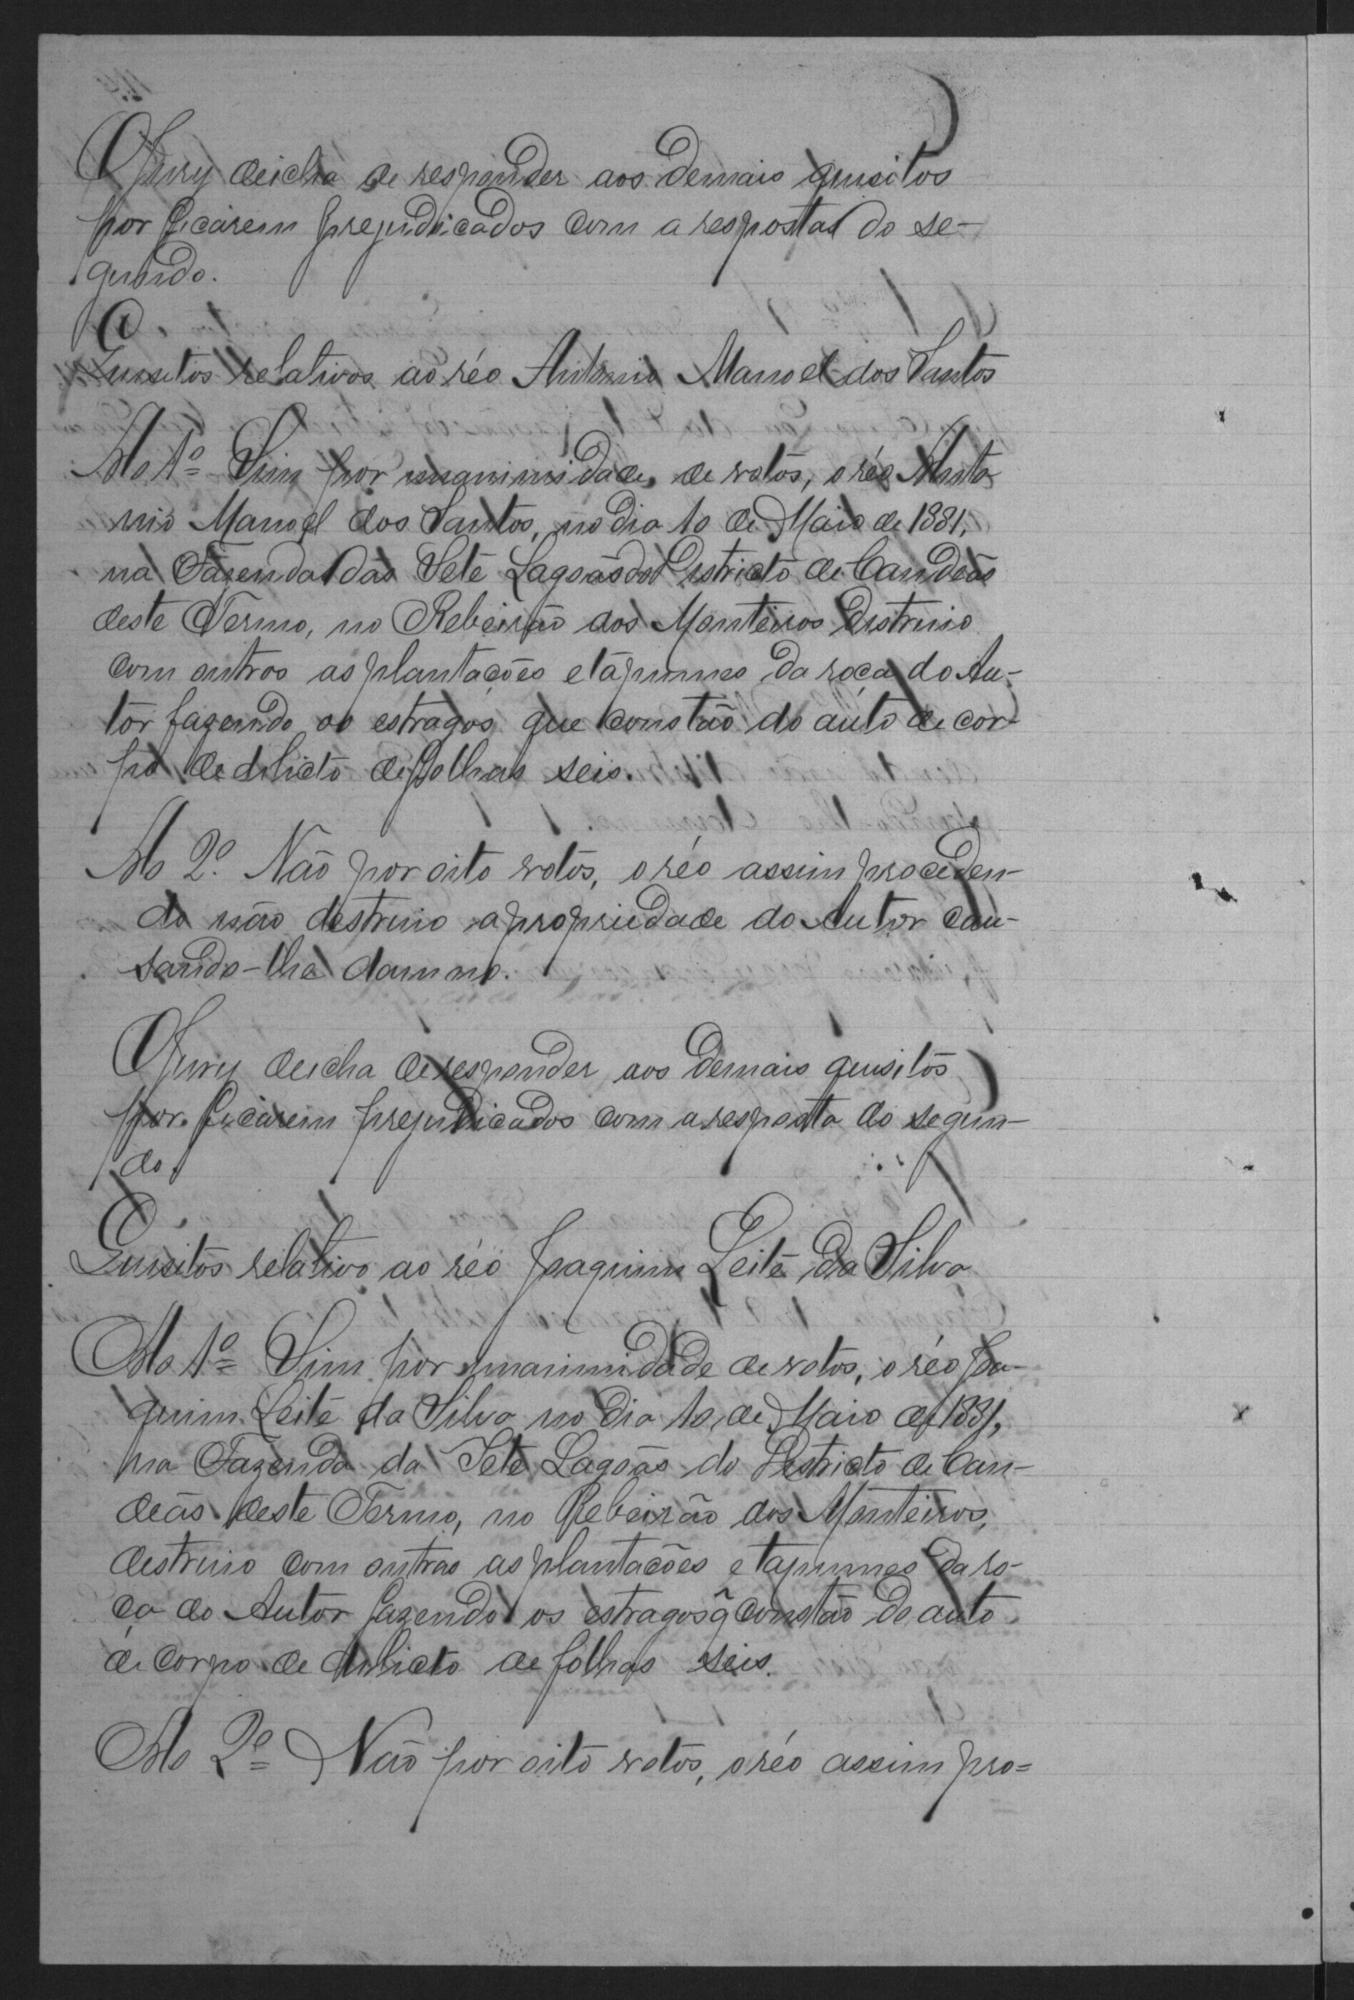 O Jury deicha de responder aos demais quisitos
por ficárem prejudicados com a resposta do se-
gundo.
Quisitos relativos ao réo Antonio Manoel dos Santos
Ao 1º Sim por unanimidade de votos, o réo Anto
nio Manoel dos Santos, no dia 10 de Maio de 1881,
na Fazenda das Sete Lagoas do Districto de Candeas
deste Termo, no Rebeirão dos Monteiros destruio
com outros as plantações e tapumes da roça do Au-
tor fazendo os estragos que constão do auto de cor-
po de delicto de folhas seis.
Ao 2º. Não por oito votos, o réo assim proceden-
do não destruio a propriedade do Autor cau-
sando-lhe damno.
O Jury deicha de responder aos demais quisitos
por ficárem prejudicados com a resposta do segun-
do.
Quisitos relativo ao réo Joaquim Leite da Silva
Ao 1º Sim por unanimidade de votos, o réo Joa-
quim Leite da Silva no dia 10 de Maio de 1881,
na Fazenda da Sete Lagoas do Destricto de Can-
deas deste Termo, no Rebeirão dos Monteiros,
destruio com outros as plantacões e tapumes da ro-
ca do Autor fazendo os estragos q̃ constão do auto
de corpo de delicto de folhas seis.
Ao 2º Não por oito votos, o réo assim pro=